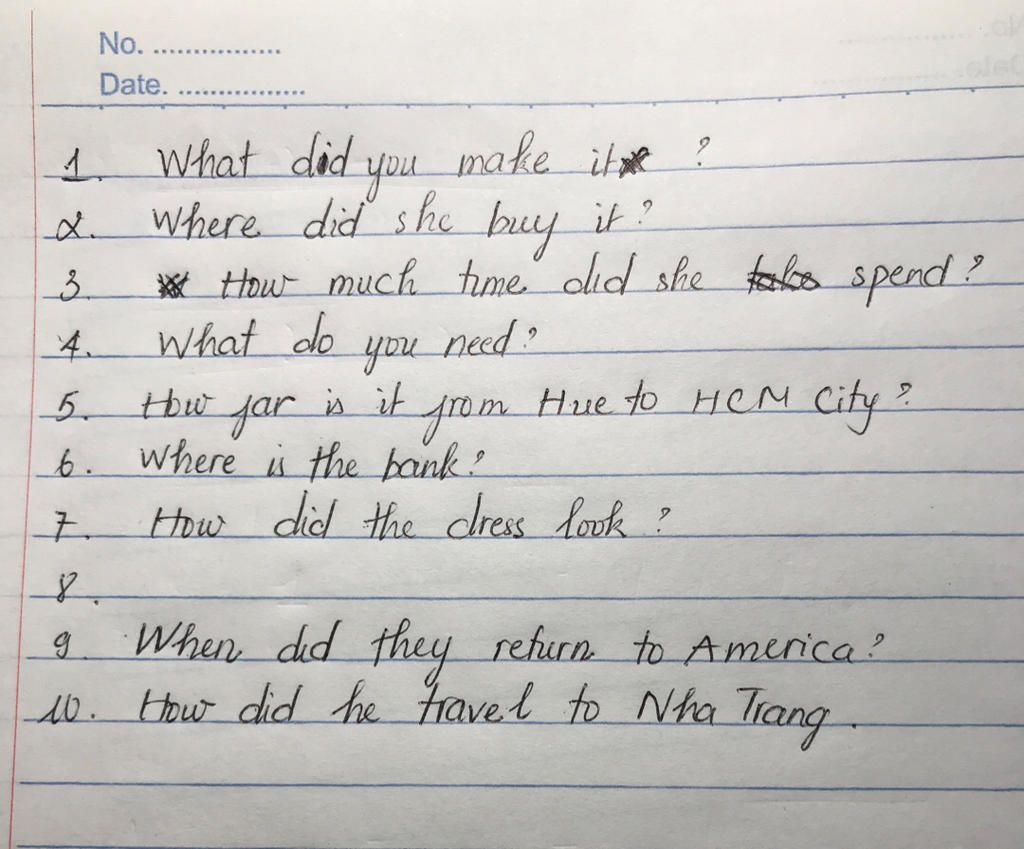 No. ................
Date. ................
1. What did you make it ?
2. Where did she buy it?
3. How much time did she spend?
4. What do you need?
5. How far is it from Hue to HCM City?
6. Where is the bank?
7. How did the dress look?
8.
9. When did they return to America?
10. How did he travel to Nha Trang.